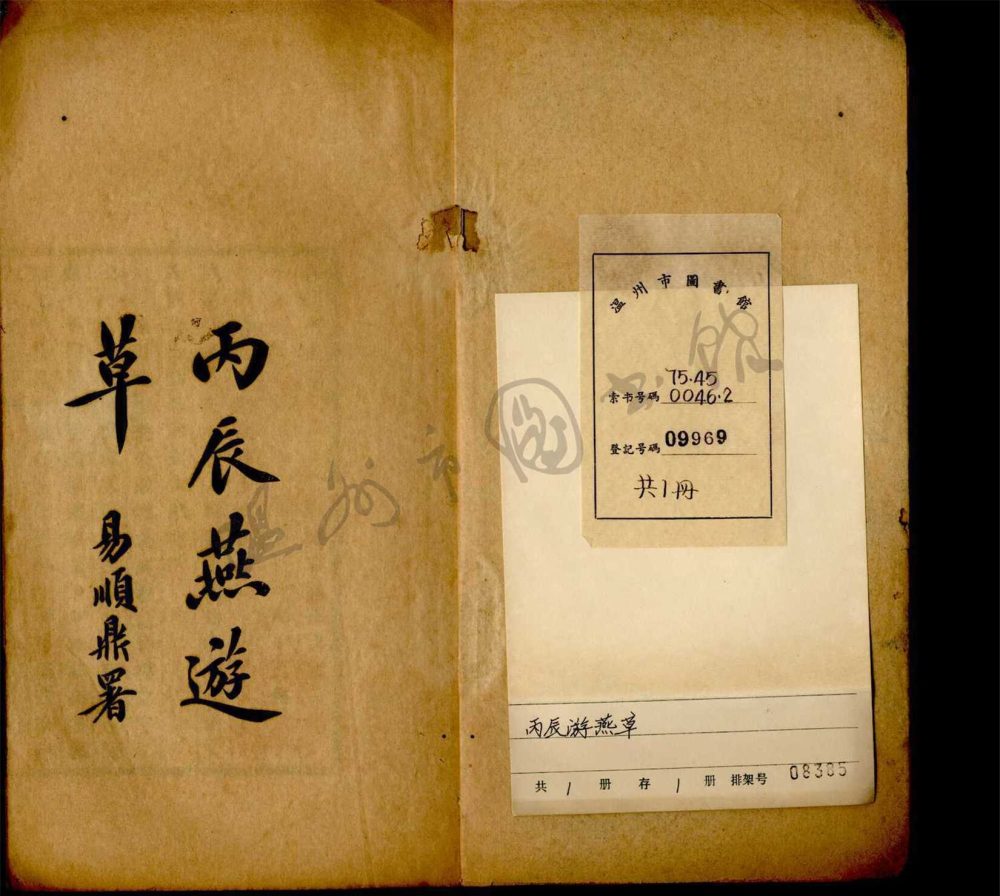 丙辰燕遊
草
易順鼎署
温州市圖書館
温州市圖書館
75.45
索书号碼 0046.2
登記号碼 09969
共1冊
丙辰游燕草
共 1 册 存 1 册 排架号 08385